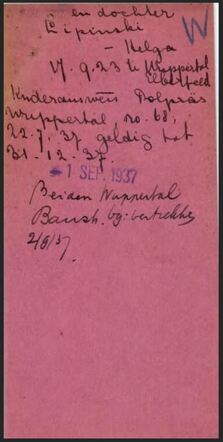 en dochter
Lipinski
W
- Helga
17.9.23 te Wuppertal
Elberfeld
Kinderausweis Polpräs
Wuppertal no. 68,
22.7.37. geldig tot
31-12-37.
1 SEP. 1937
Beiden Wuppertal
Barsh. bg: vertrekken
2/9/37